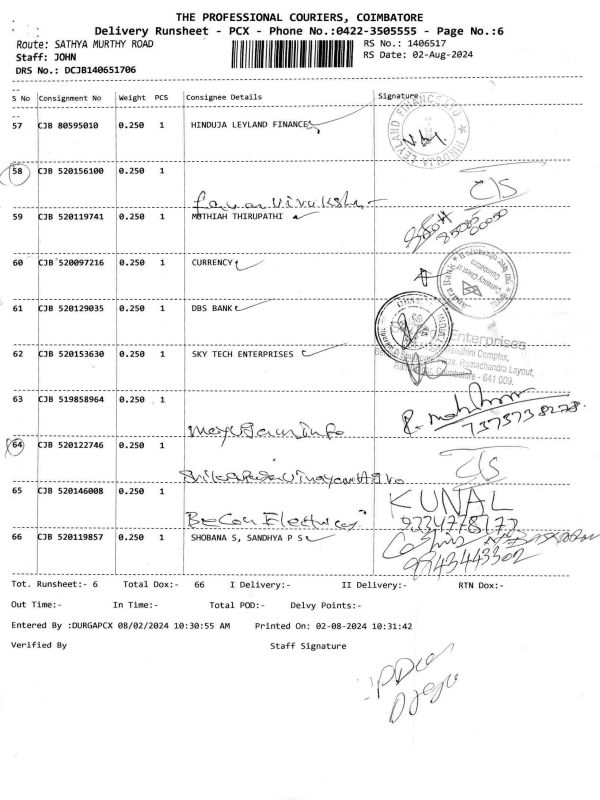 THE PROFESSIONAL COURIERS, COIMBATORE
Delivery Runsheet - PCX - Phone No.:0422-3505555 - Page No.:6
Route: SATHYA MURTHY ROAD RS No.: 1406517
Staff: JOHN RS Date: 02-Aug-2024
DRS No.: DCJB140651706
S No Consignment No Weight PCS Consignee Details Signature
57 CJB 80595010 0.250 1 HINDUJA LEYLAND FINANCE
HINDUJA LEYLAND FINANCE
58 CJB 520156100 0.250 1 C/S
59 CJB 520119741 0.250 1 MUTHIAH THIRUPATHI
60 CJB 520097216 0.250 1 CURRENCY
61 CJB 520129035 0.250 1 DBS BANK
62 CJB 520153630 0.250 1 SKY TECH ENTERPRISES
Enterprises
Complex,
Ramachandra Layout,
Coimbatore - 641 009.
63 CJB 519858964 0.250 1
7373738278
64 CJB 520122746 0.250 1 C/S
65 CJB 520146008 0.250 1 KUNAL
66 CJB 520119857 0.250 1 SHOBANA S, SANDHYA P S
9943443302
Tot. Runsheet:- 6 Total Dox:- 66 I Delivery:- II Delivery:- RTN Dox:-
Out Time:- In Time:- Total POD:- Delvy Points:-
Entered By :DURGAPCX 08/02/2024 10:30:55 AM Printed On: 02-08-2024 10:31:42
Verified By Staff Signature